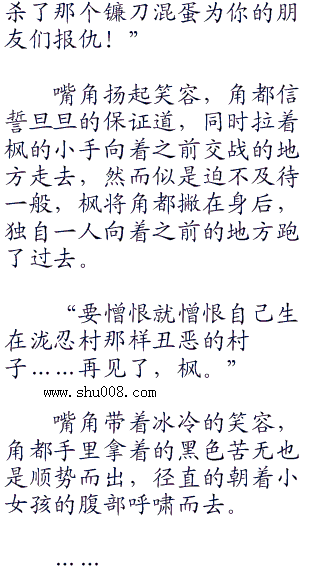 杀了那个镰刀混蛋为你的朋
友们报仇！”
嘴角扬起笑容，角都信
誓旦旦的保证道，同时拉着
枫的小手向着之前交战的地
方走去，然而似是迫不及待
一般，枫将角都撇在身后，
独自一人向着之前的地方跑
了过去。
“要憎恨就憎恨自己生
在泷忍村那样丑恶的村
子……再见了，枫。”
www.shu008.com
嘴角带着冰冷的笑容，
角都手里拿着的黑色苦无也
是顺势而出，径直的朝着小
女孩的腹部呼啸而去。
……